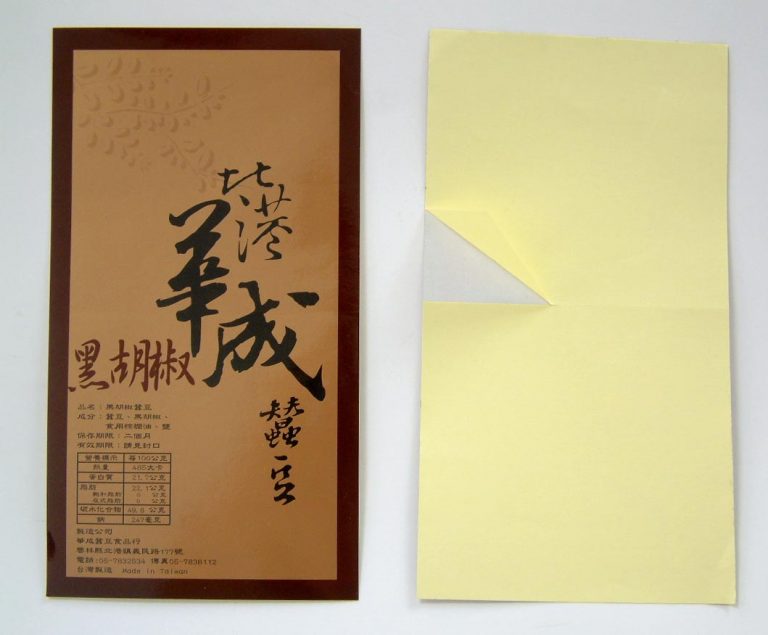 北港
華成
蠶豆
黑胡椒
品名：黑胡椒蠶豆
成分：蠶豆、黑胡椒、
食用棕櫚油、鹽
保存期限：二個月
有效期限：請見封口
營養標示 每100公克
熱量 485大卡
蛋白質 21.7公克
脂肪 22.1公克
飽和脂肪 0 公克
反式脂肪 0 公克
碳水化合物 49.6 公克
鈉 247毫克
製造公司
華成蠶豆食品行
雲林縣北港鎮義民路177號
電話:05-7832034 傳真05-7838112
台灣製造 Made in Taiwan